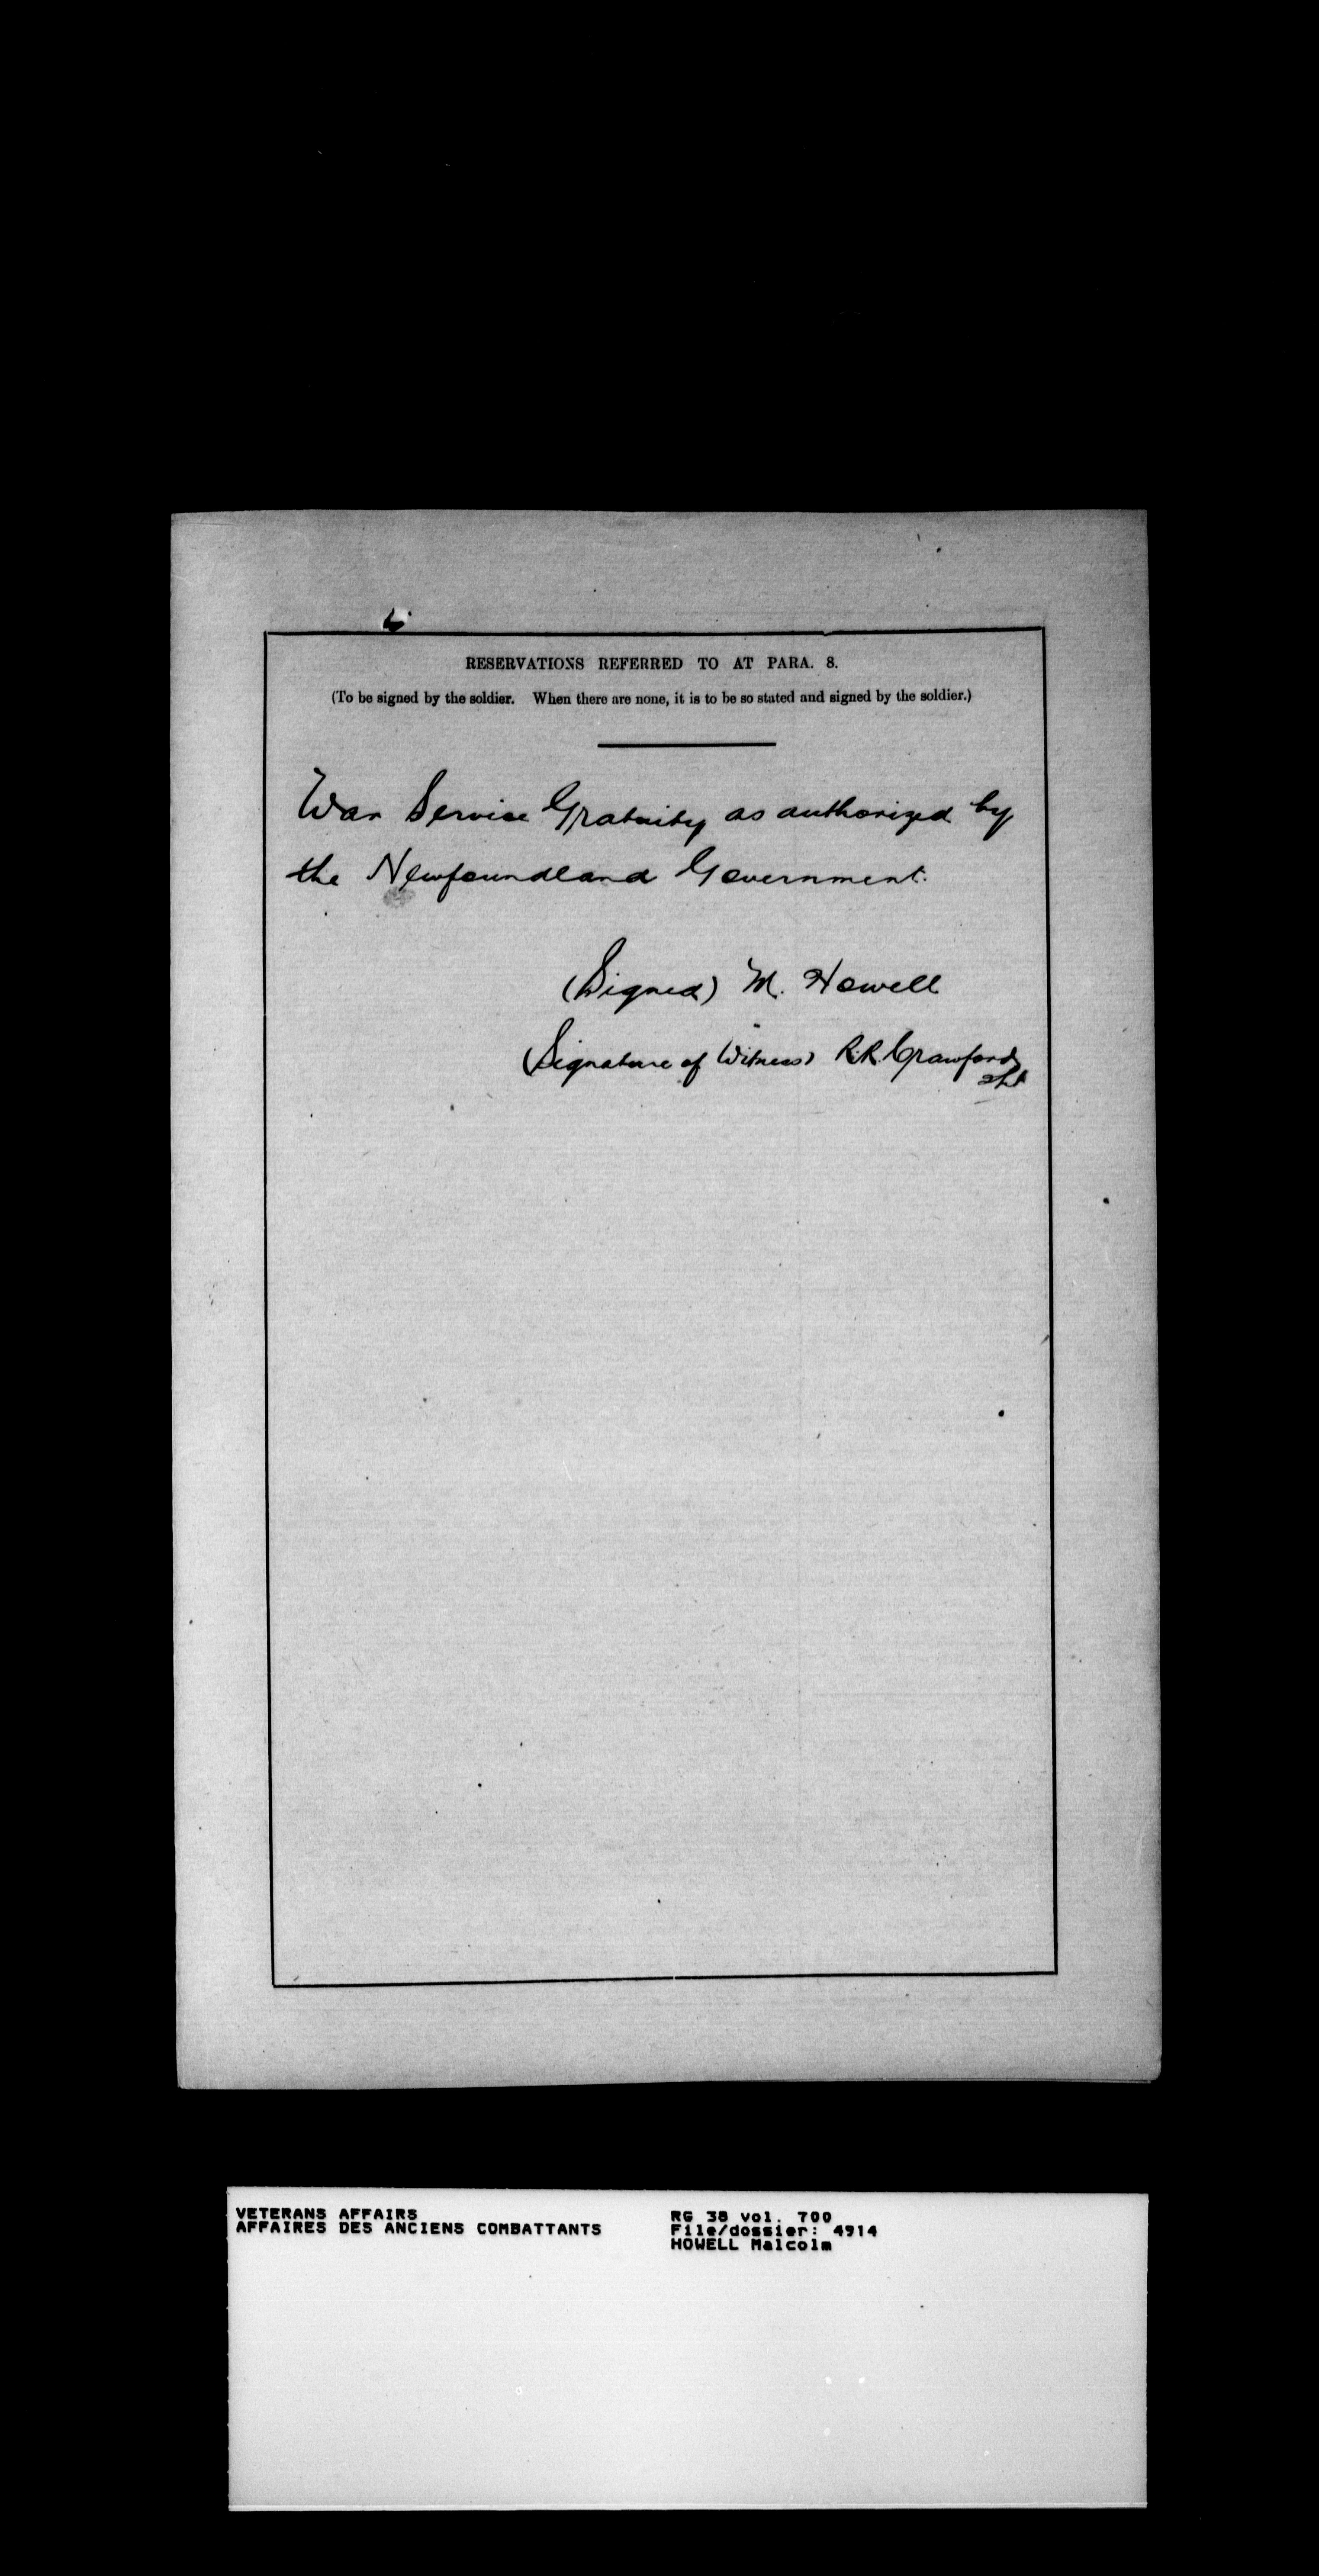 RESERVATIONS REFERRED TO AT PARA. 8.
(To be signed by the soldier. When there are none, it is to be so stated and signed by the soldier.)
War Service Gratuity as authorized by
the Newfoundland Government.
(Signed) M. Howell
(Signature of Witness) R.R. Crawford
VETERANS AFFAIRS
AFFAIRES DES ANCIENS COMBATTANTS
RG 38 vol. 700
File/dossier: 4914
HOWELL Malcolm